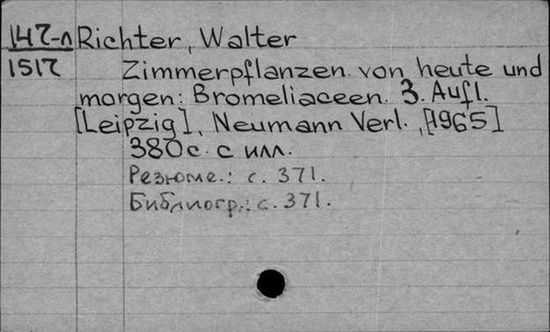 147-л Richter, Walter
1517 Zimmerpflanzen von heute und
morgen: Bromeliaceen. 3. Aufl.
[Leipzig], Neumann Verl., [1965]
380 с. с илл.
Резюме.: с. 371.
Библиогр.: с. 371.